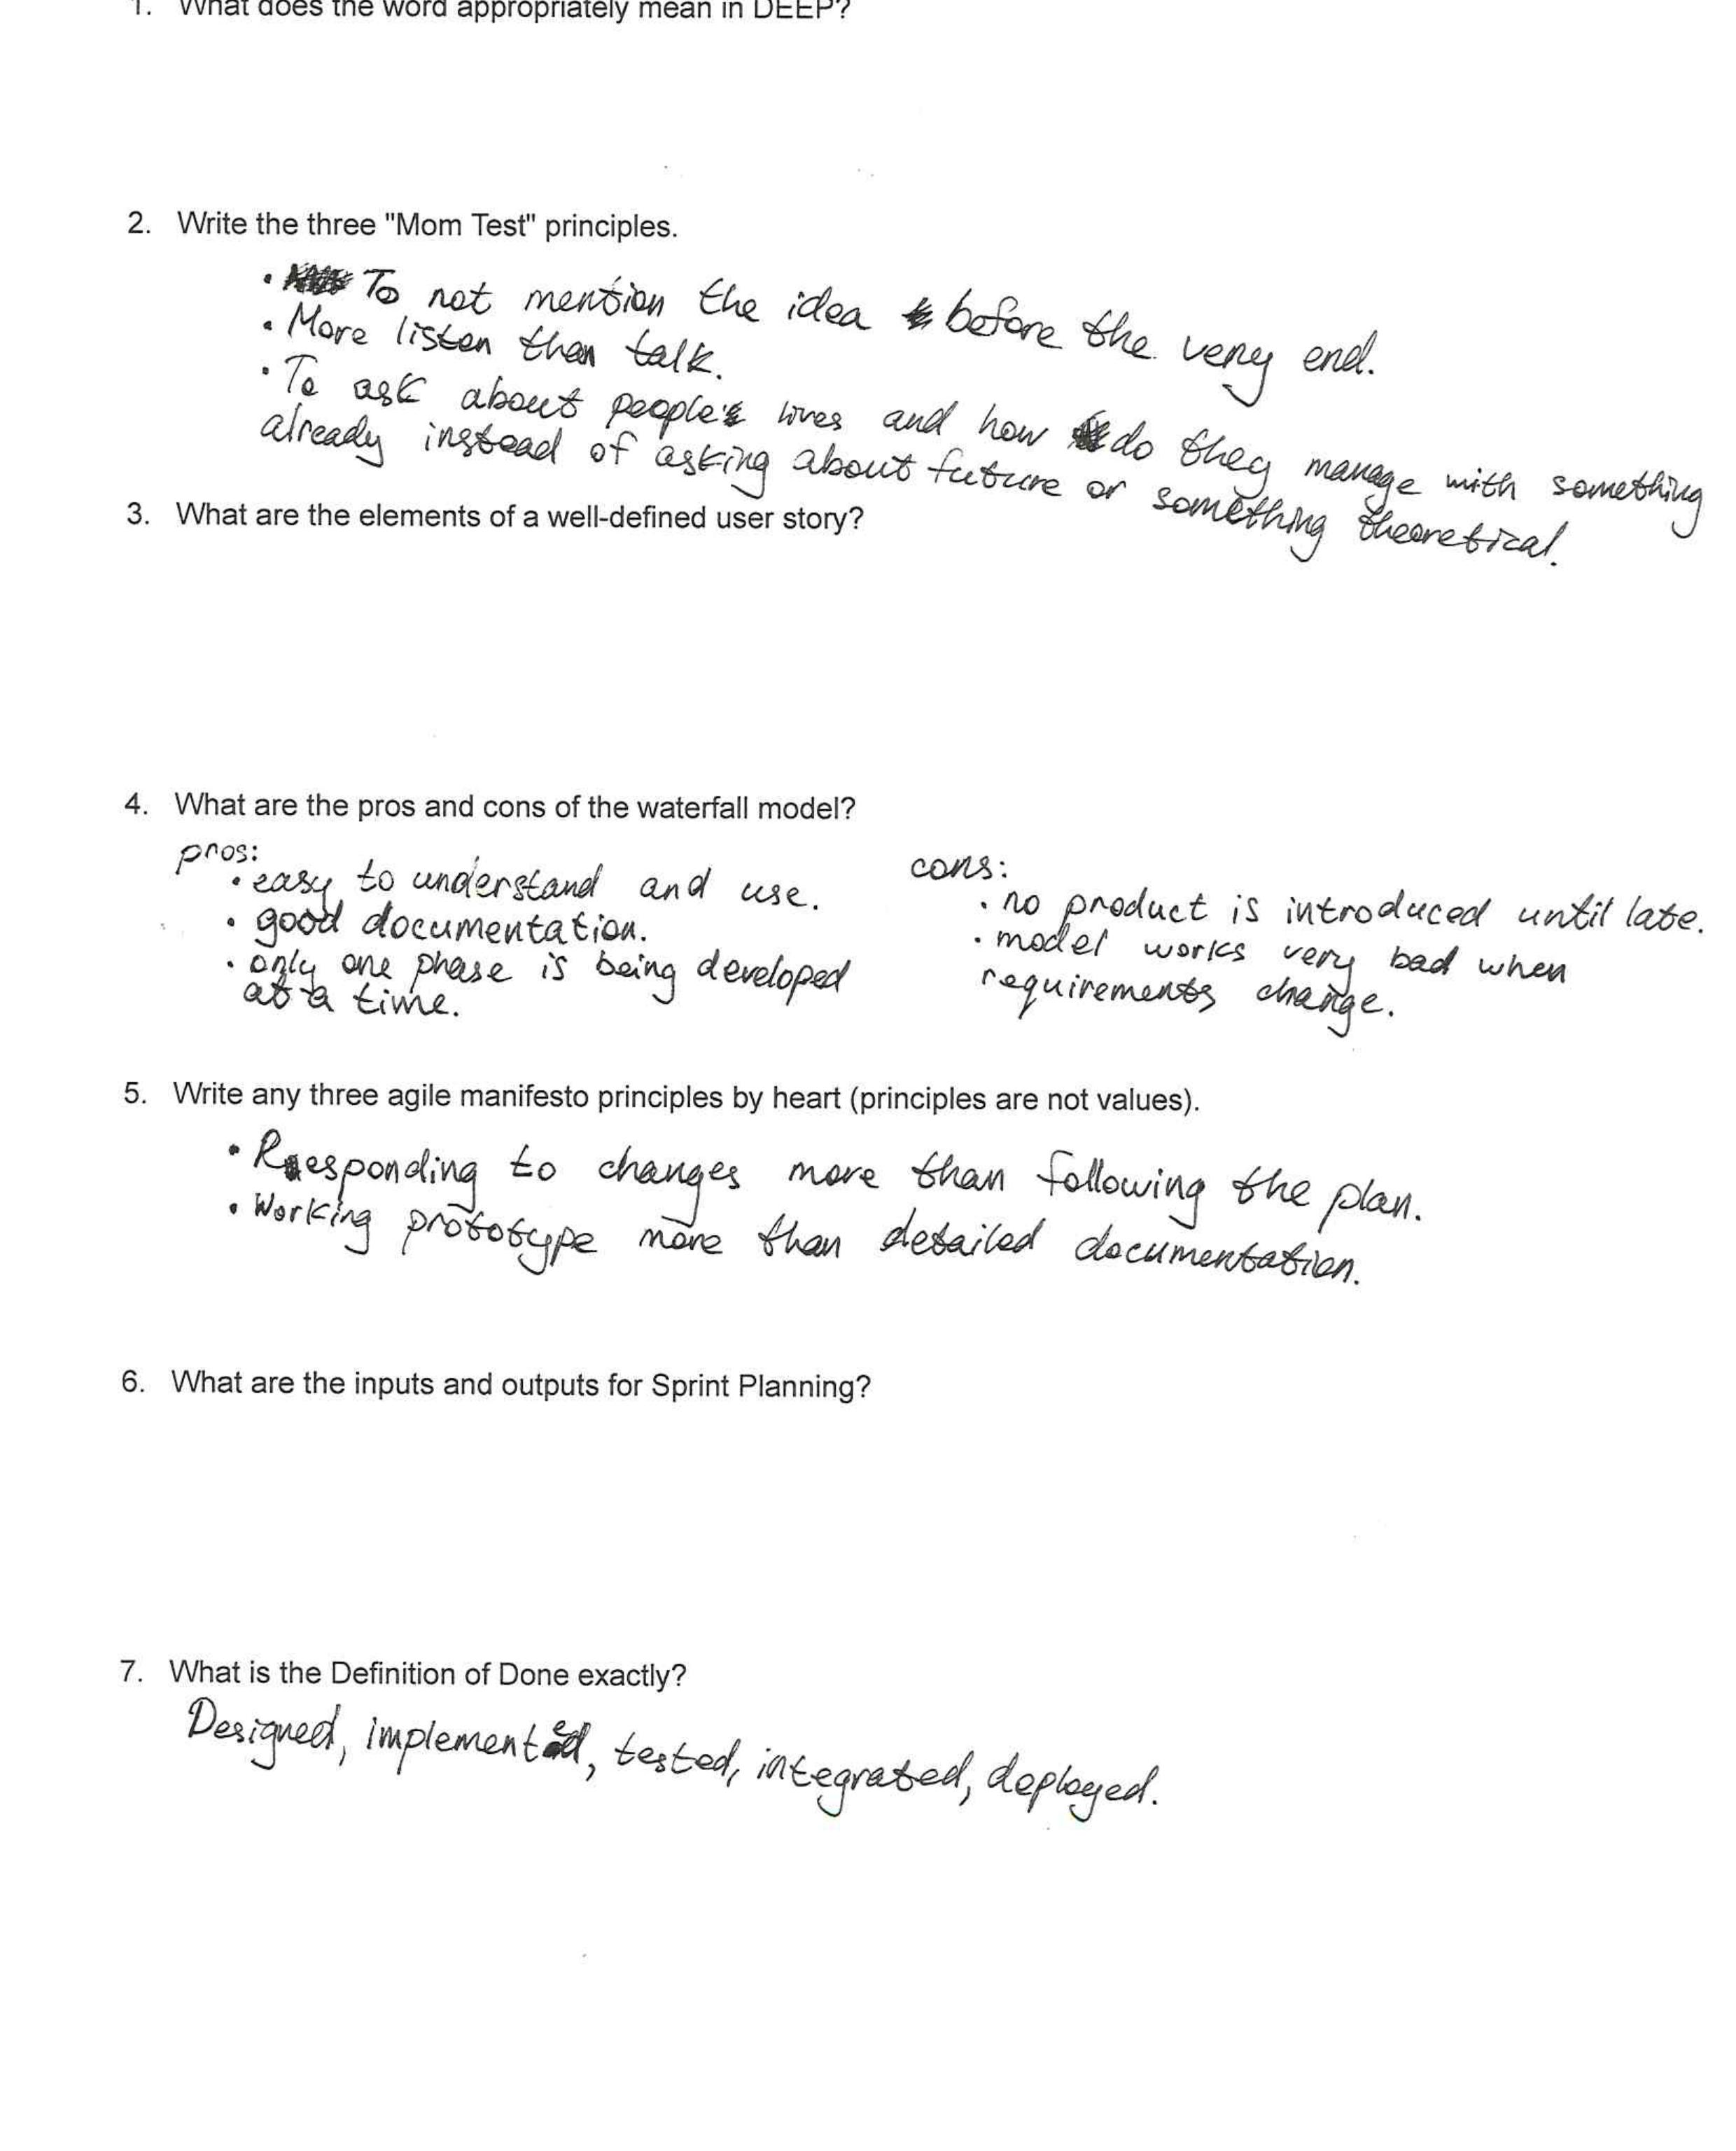 1. What does the word appropriately mean in DEEP?
2. Write the three "Mom Test" principles.
• To not mention the idea before the very end.
• More listen than talk.
• To ask about people's lives and how do they manage with something
already instead of asking about future or something theoretical.
3. What are the elements of a well-defined user story?
4. What are the pros and cons of the waterfall model?
pros:
• easy to understand and use.
• good documentation.
• only one phase is being developed
at a time.
cons:
• no product is introduced until late.
• model works very bad when
requirements change.
5. Write any three agile manifesto principles by heart (principles are not values).
• Responding to changes more than following the plan.
• Working prototype more than detailed documentation.
6. What are the inputs and outputs for Sprint Planning?
7. What is the Definition of Done exactly?
Designed, implemented, tested, integrated, deployed.